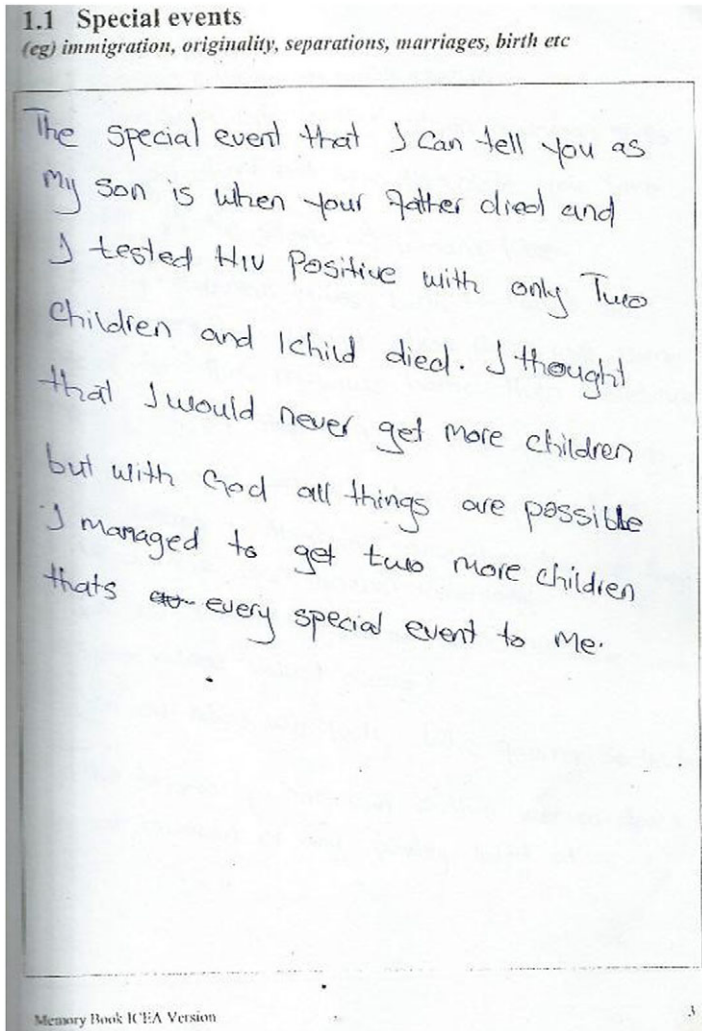 1.1 Special events
(eg) immigration, originality, separations, marriages, birth etc
The special event that I can tell you as
my son is when your father died and
I tested HIV Positive with only Two
children and 1child died. I thought
that I would never get more children
but with God all things are possible
I managed to get two more children
thats every special event to me.
Memory Book ICEA Version
3